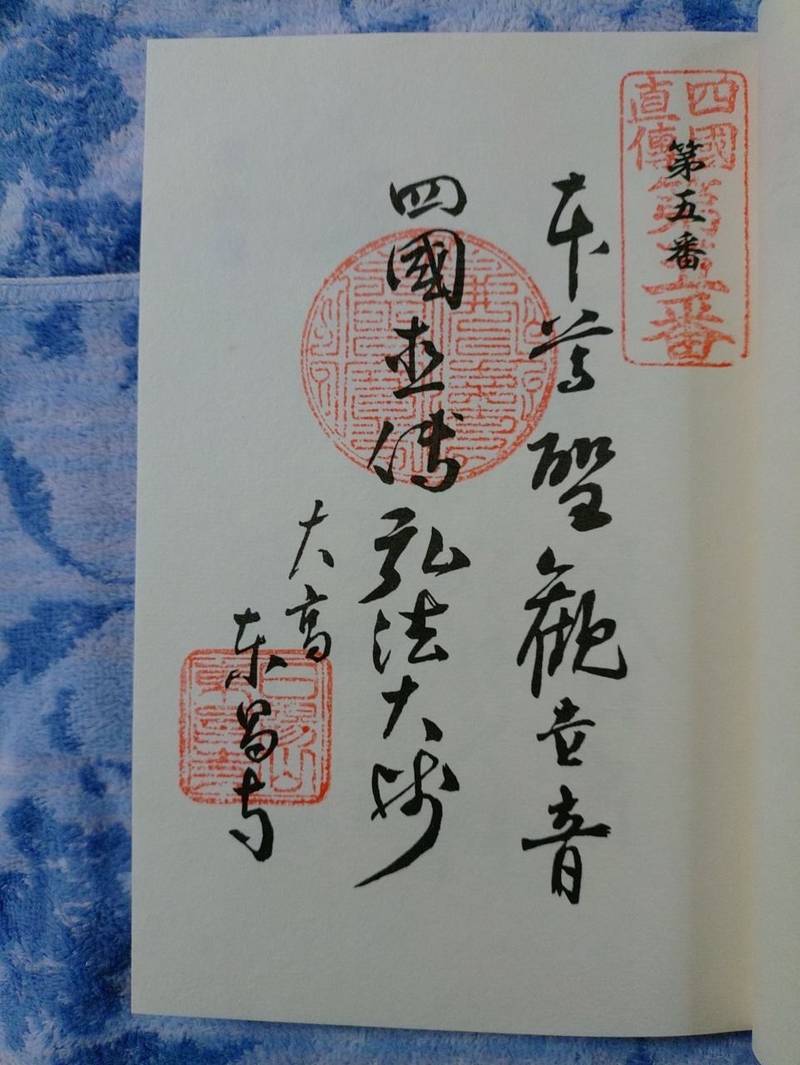 四國
直傳
第五番
第五番
本尊聖觀世音
四國直傳弘法大師
大高
東昌寺